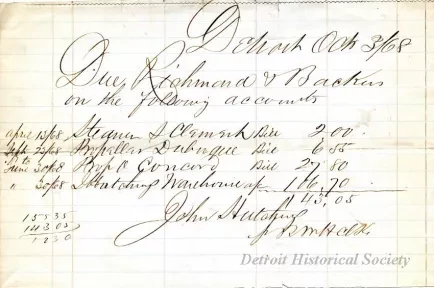 Detroit Oct 3/68
Due Richmond & Backus
on the following accounts
april 13/68 Steamer S Clement Bill 2.00
23/68 Propeller Dubuque Bill 6.55
to
June 30/68 Prop Concord Bill 27.80
" 30/68 Warehouse 106.70
143.05
John Hutchings
155 35
143 05
12 30
Detroit Historical Society